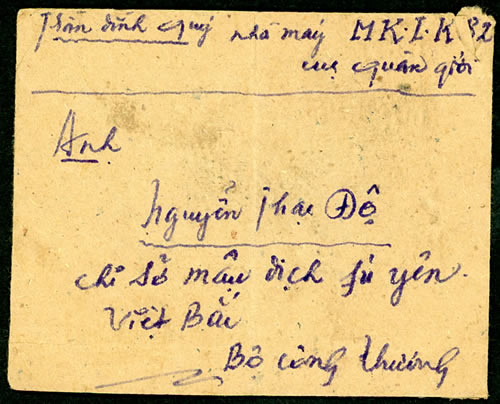 Trần đình Quý nhà máy MK.I.K 82
cục quân giới
Anh
Nguyễn Thạc Độ
chi Sở mậu dịch fú yên.
Việt Bắc
Bộ công thương